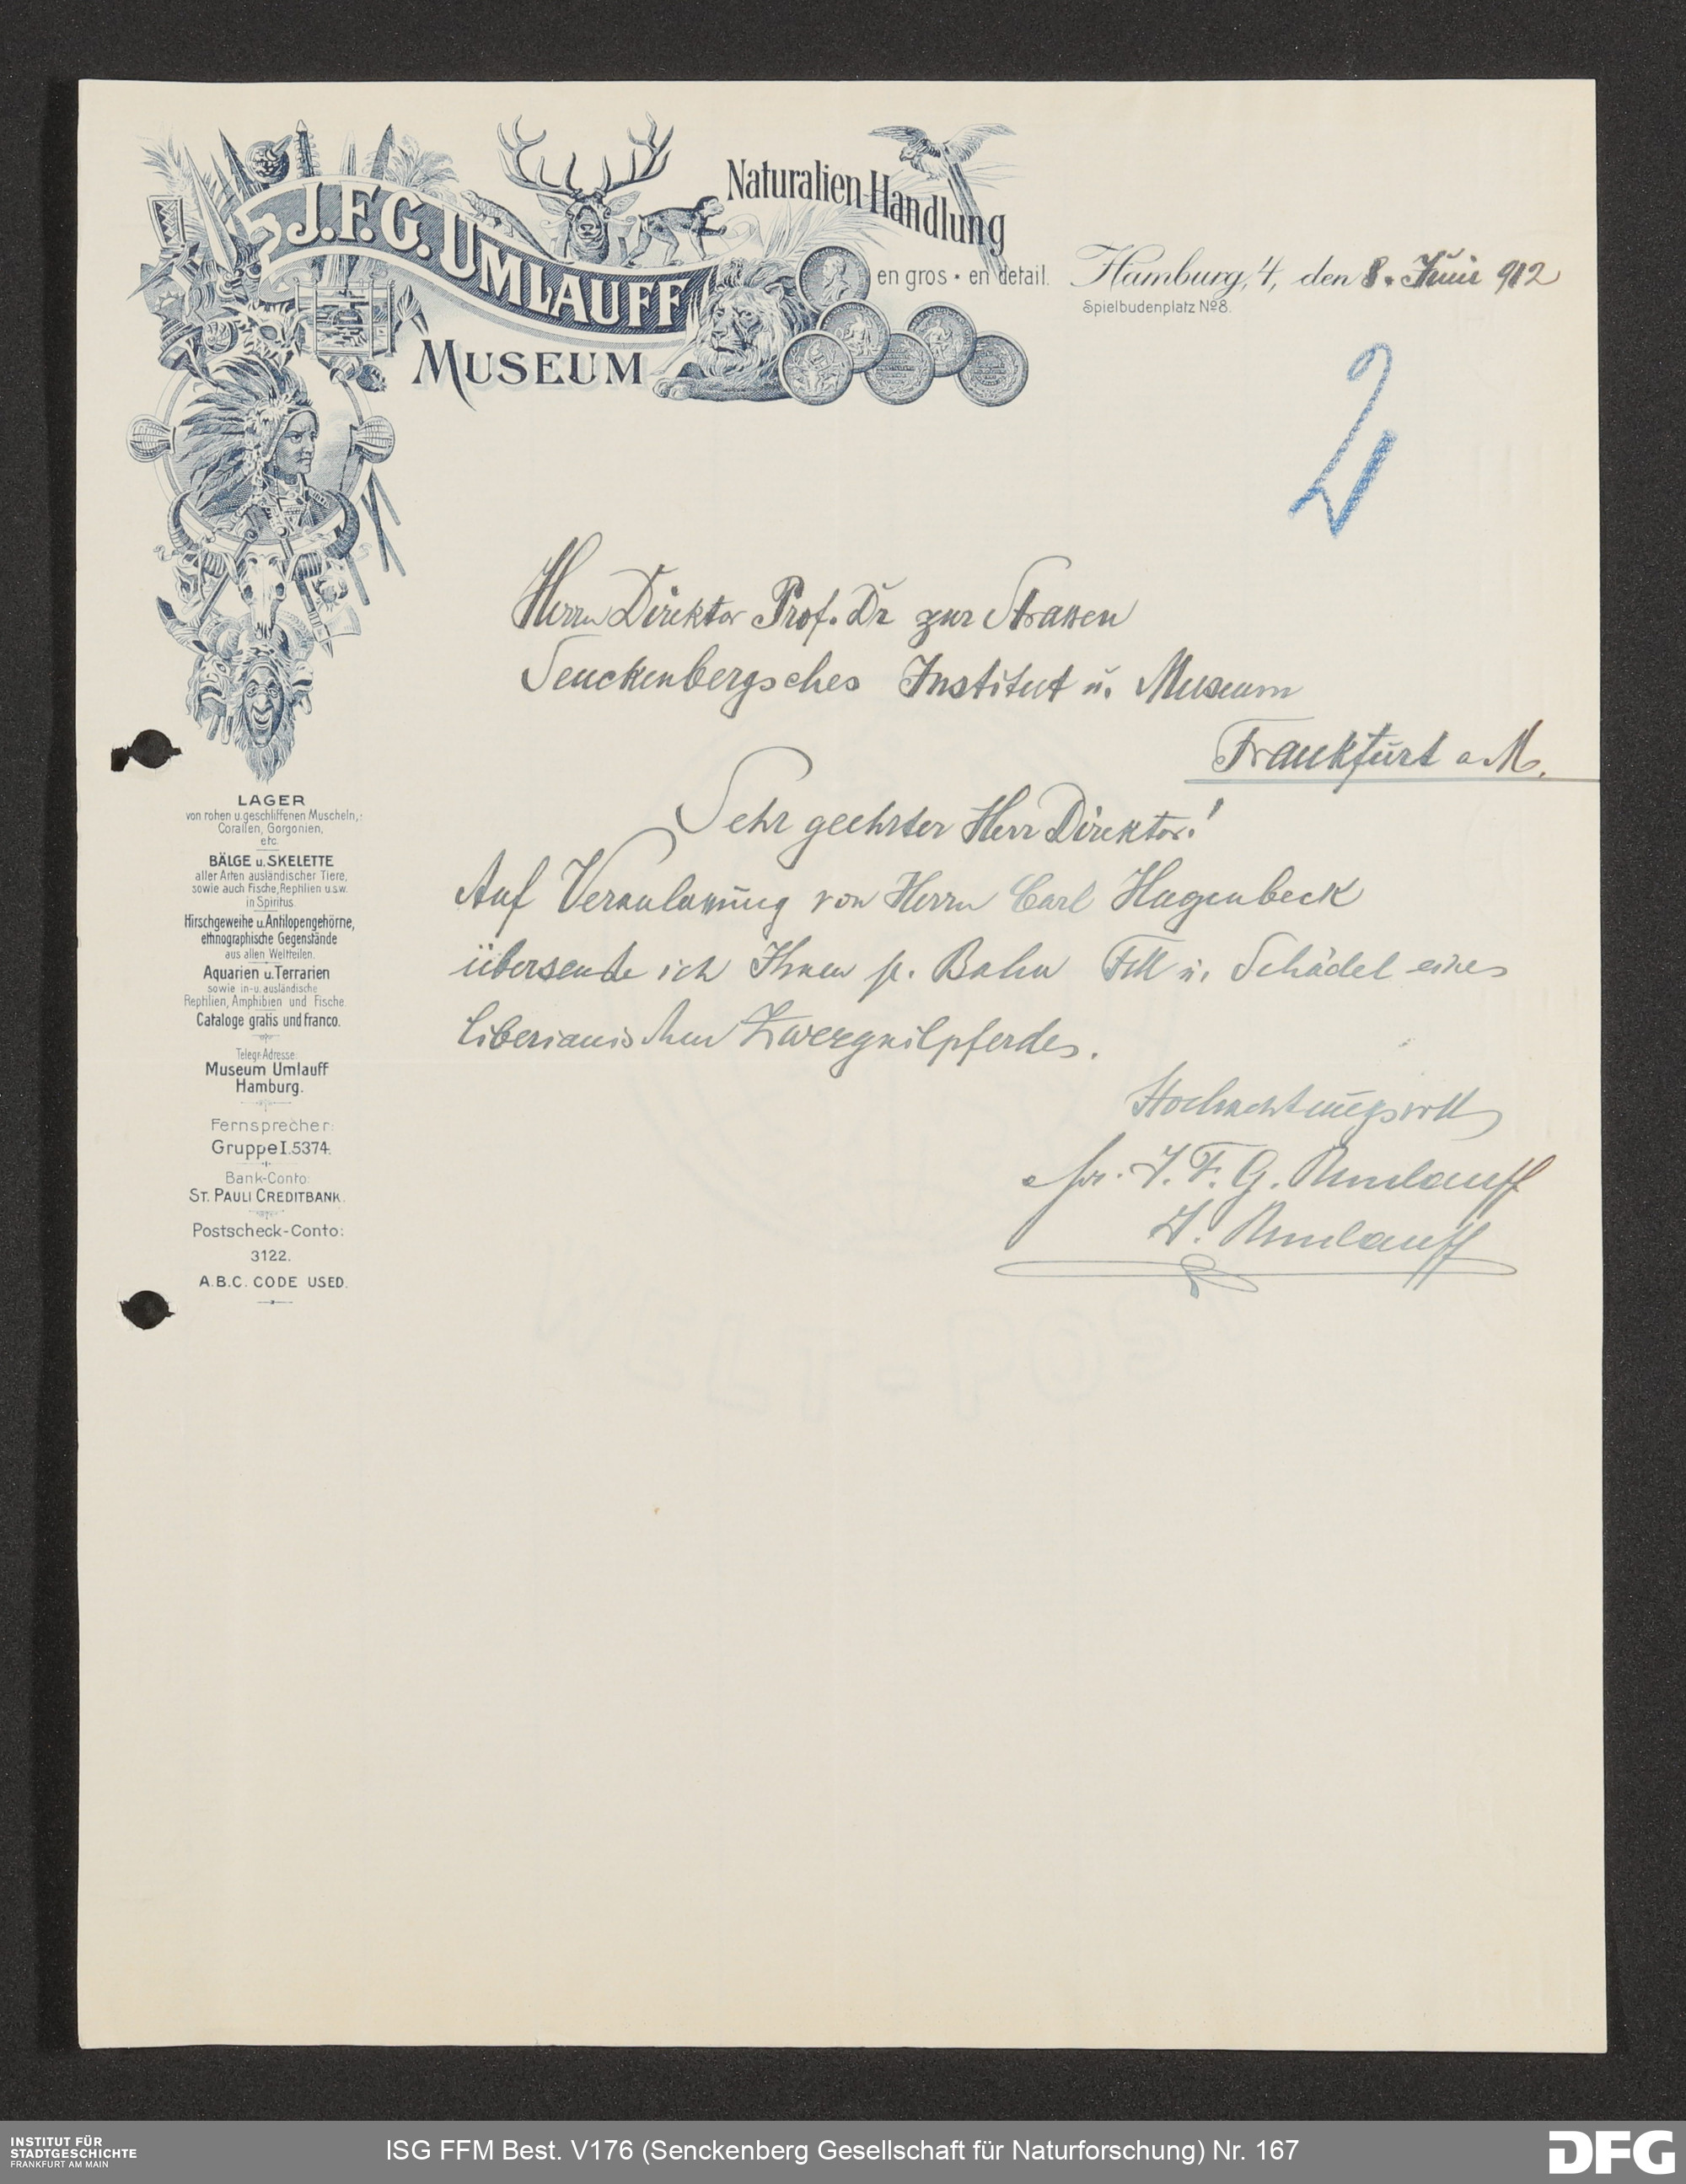 J.F.G. UMLAUFF
MUSEUM
Naturalien-Handlung
en gros • en détail.
Hamburg, 4, den 8. Juni 912
Spielbudenplatz No 8.
Herrn Direktor Prof. Dr zur Strassen
Senckenbergsches Institut u. Museum
Frankfurt a M.
Sehr geehrter Herr Direktor!
Auf Veranlassung von Herrn Carl Hagenbeck
übersende ich Ihnen p. Bahn Fell u. Schädel eines
liberianischen Zwergnilpferdes.
Hochachtungsvoll
J. F. G. Umlauff
Umlauff
LAGER
von rohen u. geschliffenen Muscheln,
Corallen, Gorgonien,
etc.
BÄLGE u. SKELETTE
aller Arten ausländischer Tiere,
sowie auch Fische, Reptilien u.s.w.
in Spiritus.
Hirschgeweihe u. Antilopengehörne,
ethnographische Gegenstände
aus allen Weltteilen.
Aquarien u. Terrarien
sowie in- u. ausländische
Reptilien, Amphibien und Fische.
Cataloge gratis und franco.
Telegr.-Adresse:
Museum Umlauff
Hamburg.
Fernsprecher:
Gruppe I. 5374.
Bank-Conto:
ST. PAULI CREDITBANK.
Postscheck-Conto:
3122.
A.B.C. CODE USED.
INSTITUT FÜR
STADTGESCHICHTE
FRANKFURT AM MAIN
ISG FFM Best. V176 (Senckenberg Gesellschaft für Naturforschung) Nr. 167
DFG